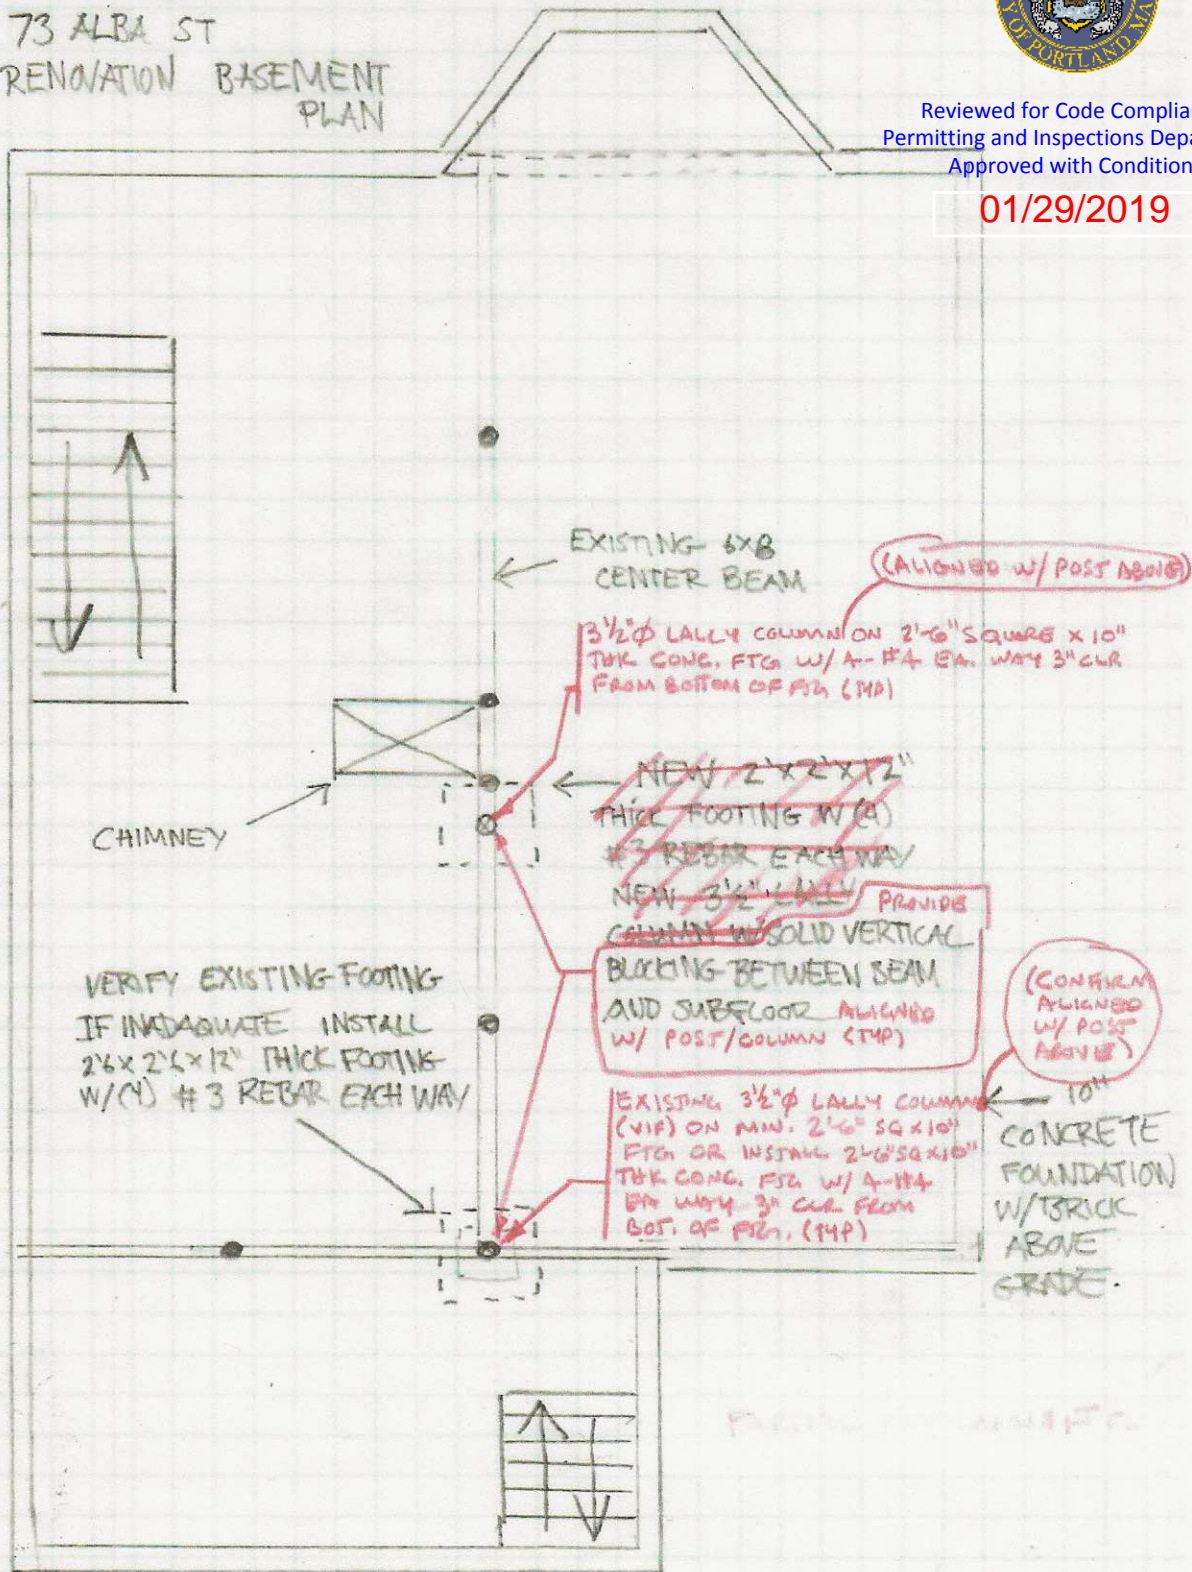 73 ALBA ST
RENOVATION BASEMENT
PLAN
Y OF PORTLAND MA
Reviewed for Code Complia
Permitting and Inspections Depa
Approved with Condition
01/29/2019
EXISTING 6X8
CENTER BEAM
(ALIGNED W/ POST ABOVE)
3½"Ø LALLY COLUMN ON 2'-6" SQUARE X 10"
THK CONC. FTG W/ 4-#4 EA. WAY 3" CLR
FROM BOTTOM OF FTG (TYP)
NEW 2'X2'X12"
THICK FOOTING W (4)
#3 REBAR EACH WAY
NEW 3½" LALLY
COLUMN W/ SOLID VERTICAL
PROVIDE
BLOCKING BETWEEN BEAM
AND SUBFLOOR ALIGNED
W/ POST/COLUMN (TYP)
CHIMNEY
VERIFY EXISTING FOOTING
IF INADAQUATE INSTALL
2'6 X 2'6 X 12" THICK FOOTING
W/(4) #3 REBAR EACH WAY
(CONFIRM
ALIGNED
W/ POST
ABOVE)
EXISTING 3½"Ø LALLY COLUMN
(VIF) ON MIN. 2'-6" SQ X10"
FTG OR INSTALL 2'-6"SQ X10"
THK CONC. FTG W/ 4-#4
EA WAY 3" CLR FROM
BOT. OF FTG. (TYP)
10"
CONCRETE
FOUNDATION
W/BRICK
ABOVE
GRADE.